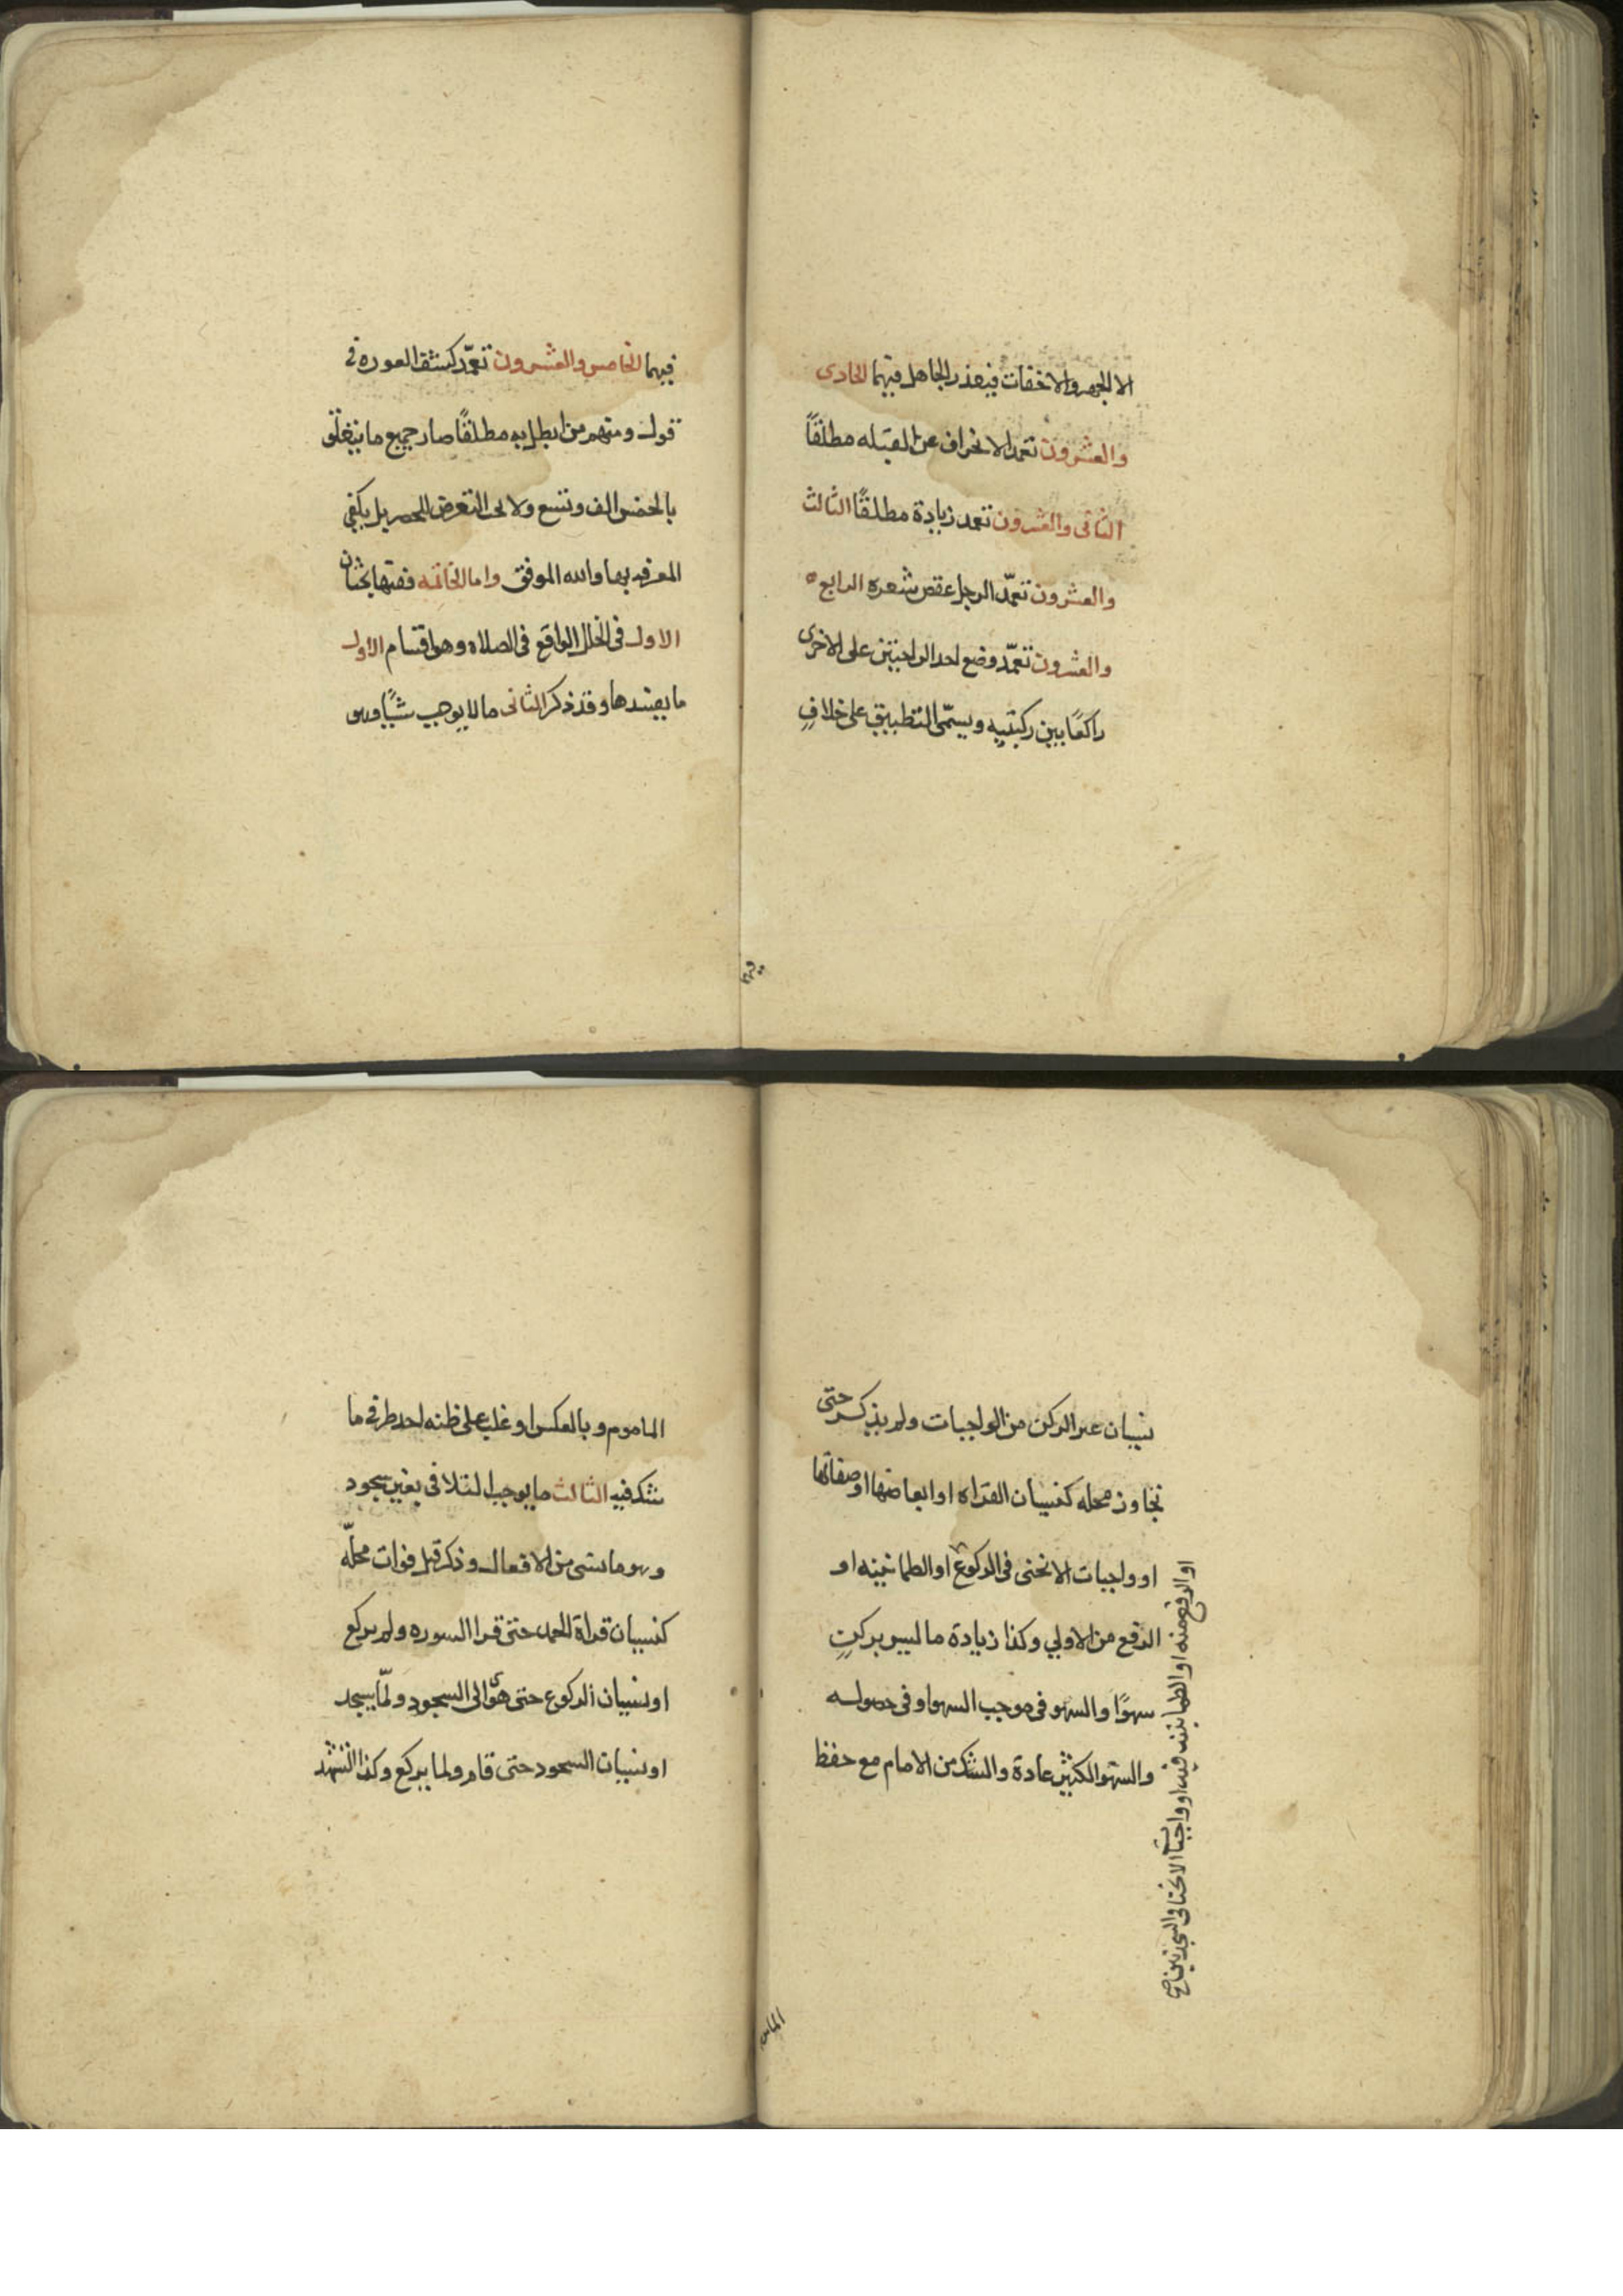 الا الجهر والاخفات فيعذر الجاهل فيهما الحادى
والعشرون تعمد الانحراف عن القبله مطلقاً
الثانى والعشرون تعمد زيادة مطلقًا الثالث
والعشرون تعمّد الرجل عقص شعره الرابع
والعشرون تعمّد وضع احد الراحتين على الاخرى
راكعًا بين ركبتيه ويسمّى التطبيق على خلافٍ
فيهما
فيهما الخامس والعشرون تعمّد كشف العوره فى
قول ومنهم من ابطل به مطلقًا صار جميع ما يتعلق
بالخمس الف وتسع ولا يجب التعرض للحصر بل يكفي
المعرفه بها والله الموفق واما الخاتمه ففيها بحثان
الاول فى الخلل الواقع فى الصلاه وهو اقسام الاول
ما يفسدها وقد ذكر الثانى ما لا يوجب شيًا وهو
نسيان غير الركن من الواجبات ولم يذكر حتى
تجاوز محله كنسيان القراه او ابعاضها او صفاتها
او واجبات الانحنى فى الركوع او الطمانينه او
الرفع من الاولي وكذا زيادة ما ليس بركنٍ
سهوًا والسهو فى موجب السهو او فى حصوله
والسهو الكثير عادة والشك من الامام مع حفظ
او الرفع منه او الطمانينه فيه او واجبات الانحنا فى السجدتين صح
المامو
الماموم وبالعكس او غلب على ظنه احد طرفى ما
شك فيه الثالث ما يوجب التلافى بغير سجود
وهو ما نسى من الافعال وذكر قبل فوات محلّه
كنسيان قراة الحمد حتى قرا السوره ولم يركع
او نسيان الركوع حتى هوى الى السجود ولمّا يسجد
او نسيان السجود حتى قام ولما يركع وكذا التشهد